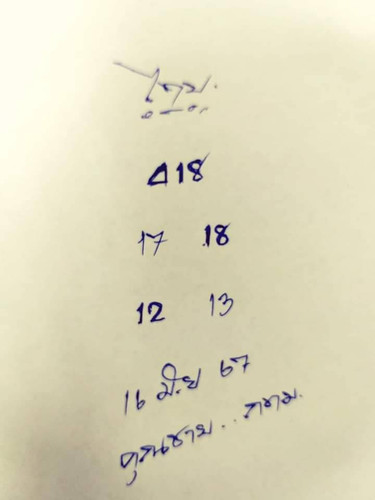 ไทย.
△18
17 18
12 13
16 มิย 67
คุณชาย..